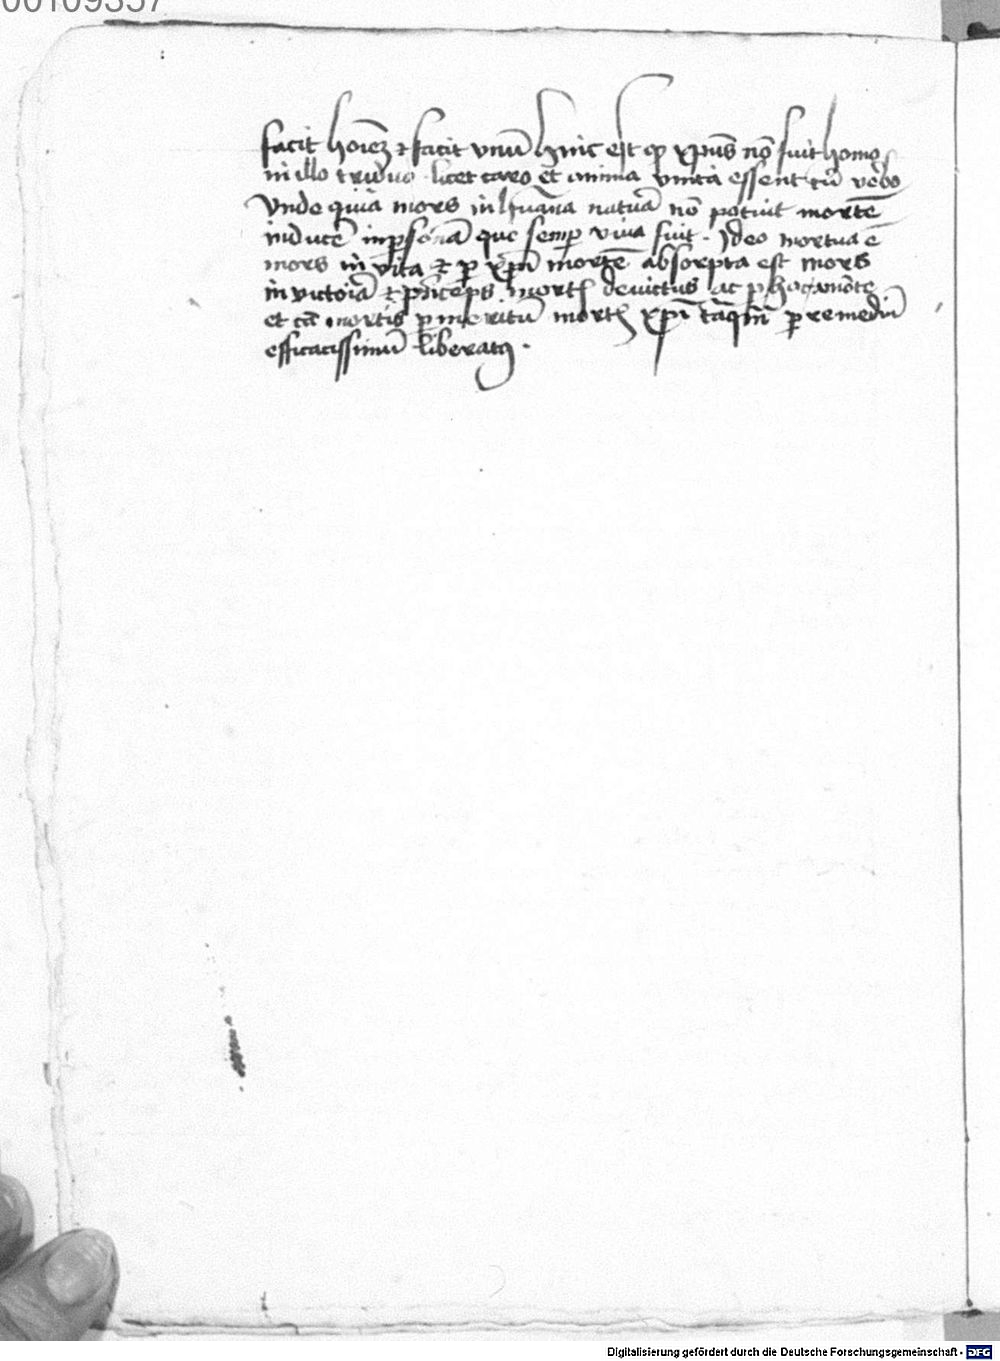 00109357
facit hoīez ⁊ facit vnū hinc est ꝙ xpūs nō fuit homo
in illo triduo licet caro et anima vnita essent cū verbo
Vnde quia mors in huāna natura nō potuit mortē
inducē in ꝑsonā que semꝑ viua fuit . Ideo mortua ē
mors in vita ⁊ ꝑ xpī mortē absorpta est mors
in victoriā ⁊ prīceps mortꝭ deuictus ac ꝑ hoc
et cā mortis ꝑ meritū mortꝭ xpī tāqm̄ ꝑ remediū
efficacissimū liberatꝰ .
Digitalisierung gefördert durch die Deutsche Forschungsgemeinschaft - DFG